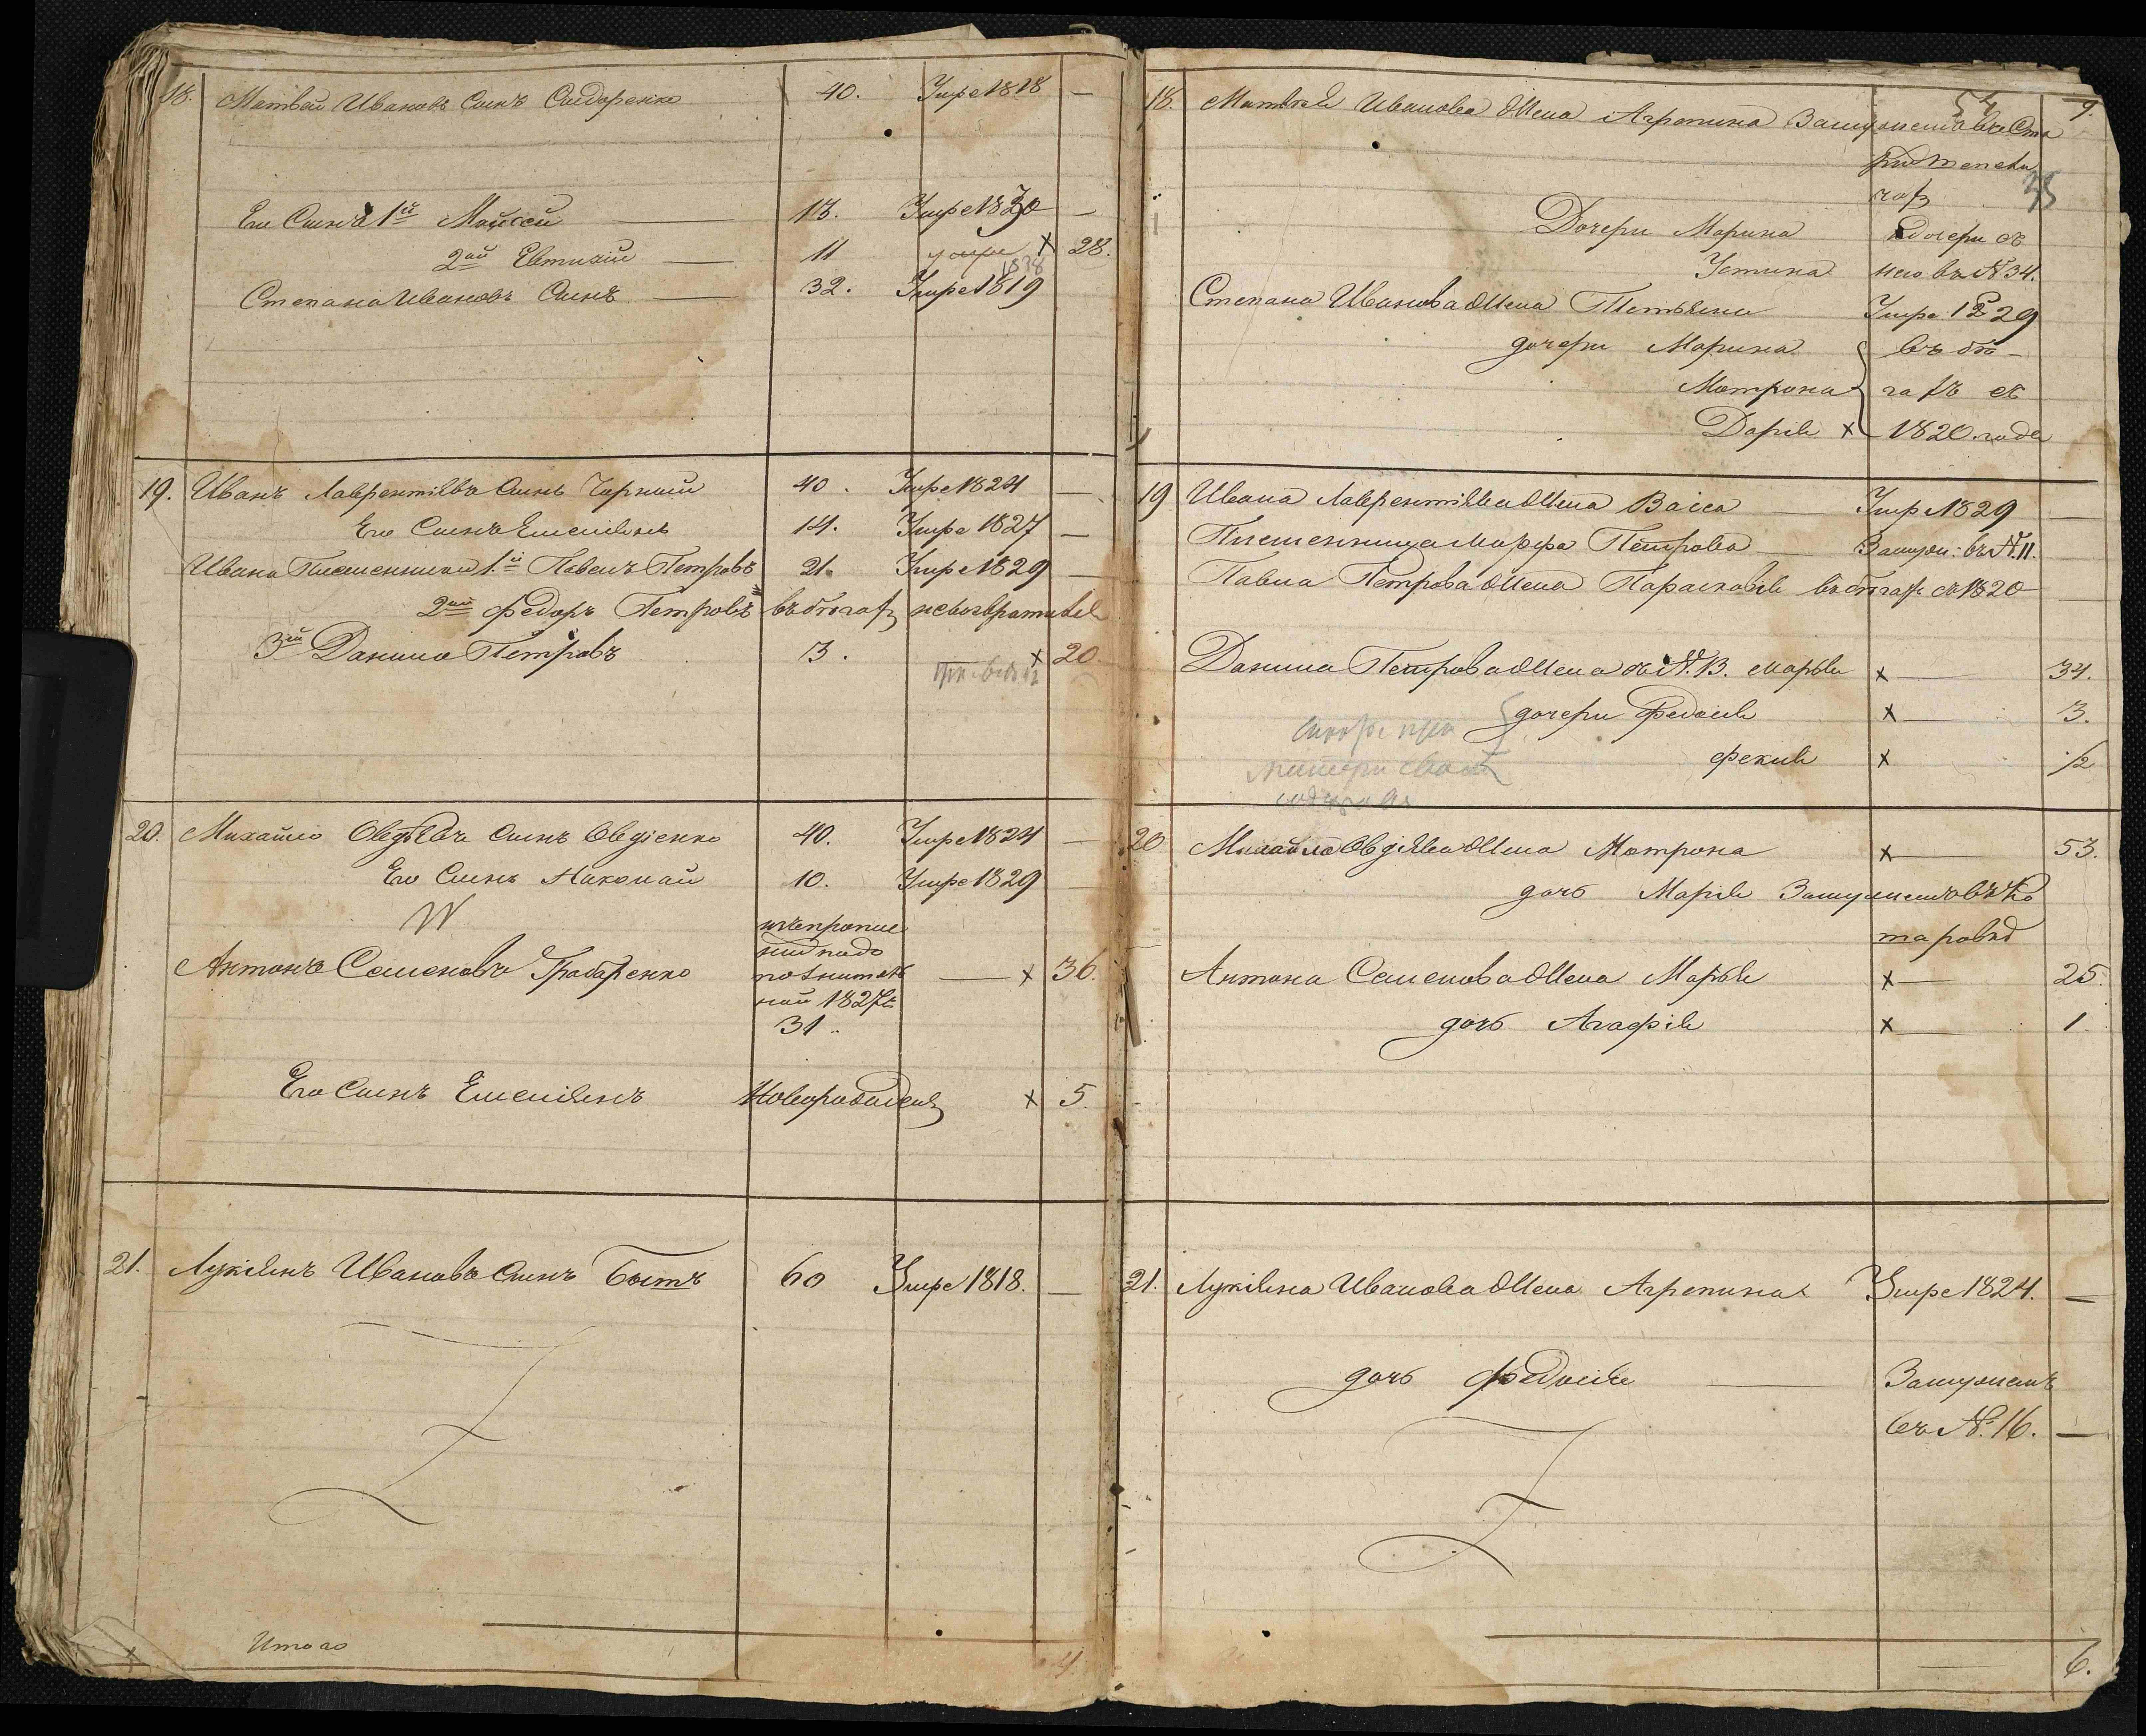 18. Матвей Ивановъ Сынъ Сидоренко 40. Умре 1818 —
Его Сынъ 1й Мойсей — 13. Умре 1830 —
2ой Евтихій — 11 умре 1838 х 28.
Степанъ Ивановъ Сынъ — 32. Умре 1819
19. Иванъ Лаврентіевъ Сынъ Чорный 40. Умре 1824 —
Его Сынъ Емеліянъ 14. Умре 1827 —
Ивана Племенники 1й Павелъ Петровъ 21. Умре 1829 —
2ой Федоръ Петровъ въ бѣгахъ невозвратился
3й Данило Петровъ 13. х 20.
20. Михайло Овдѣевъ Сынъ Овдіенко 40. Умре 1824 —
Его Сынъ Николай 10. Умре 1829 —
Антонъ Семеновъ Грабаренко
31.. — х 36.
Его Сынъ Емеліянъ Новорожденъ х 5.
21. Лукіянъ Ивановъ Сынъ Бытъ 60 Умре 1818. —
Итого 4.
54 9.
18. Матвея Иванова Жена Агрепина Замужемъ въ Ста
35
Дочери Марина дочери съ
Устина нею въ № 34.
Степана Иванова Жена Тетьяна Умре 1829
дочери Марина въ бѣ-
Мотрона гахъ съ
Дарія х 1820 года
19 Ивана Лаврентіева Жена Васса — Умре 1829 —
Племенница Марфа Петрова — Замуж: въ № 11.
Павла Петрова Жена Парасковія въ бѣгахъ съ 1820 —
Данила Петрова Жена съ № 13. Марья х — 34.
дочери Федосія х — 3.
Фекла х ½
матери
20 Михайла Овдѣева Жена Мотрона х — 53.
дочь Марія Замужемъ въ Ко
маровкѣ
Антона Семенова Жена Марья х — 25.
дочь Агафія х — 1.
21. Лукіяна Иванова Жена Агрепина Умре 1824. —
дочь Федосія — Замужемъ
въ № 16. —
6.